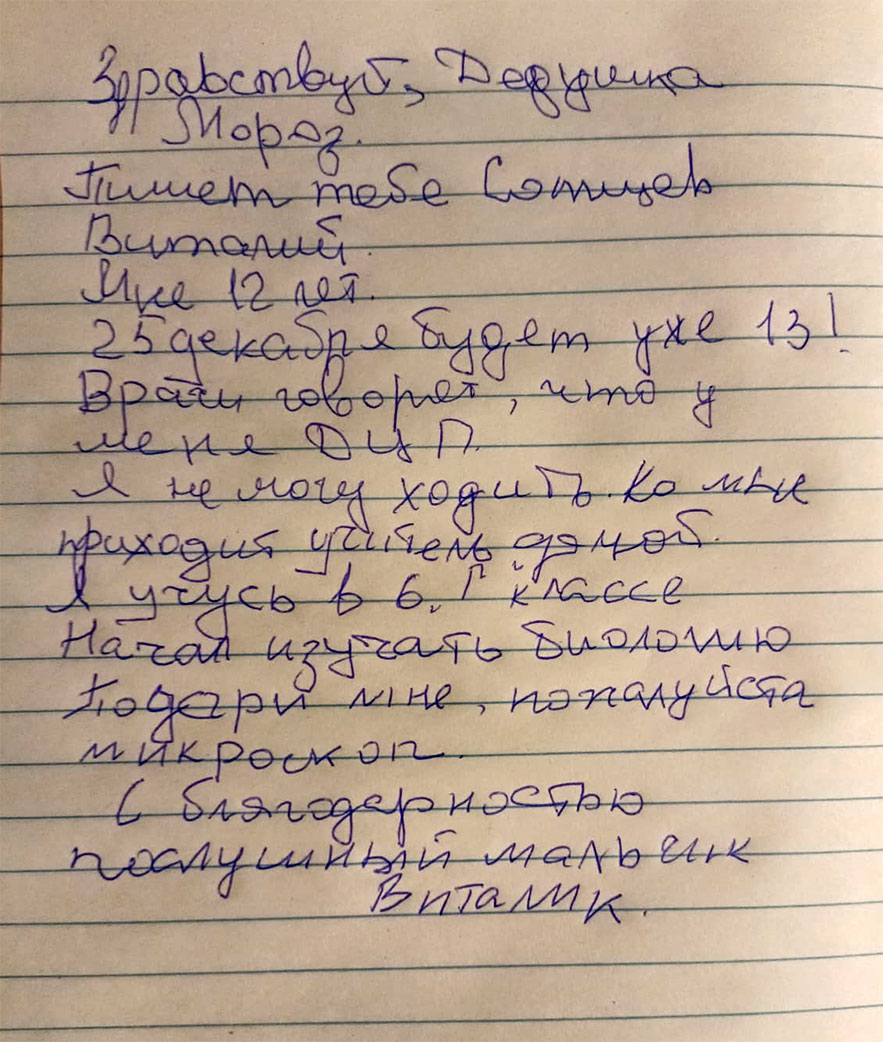 Здравствуй, Дедушка
Мороз.
Пишет тебе
Виталий.
Мне 12 лет.
25 декабря будет уже 13!
Врачи говорят, что у
меня ДЦП.
Я не могу ходить. Ко мне
приходит учитель домой.
Я учусь в 6.Г классе
Начал изучать биологию
Подари мне, пожалуйста
микроскоп.
С благодарностью
послушный мальчик
Виталик.